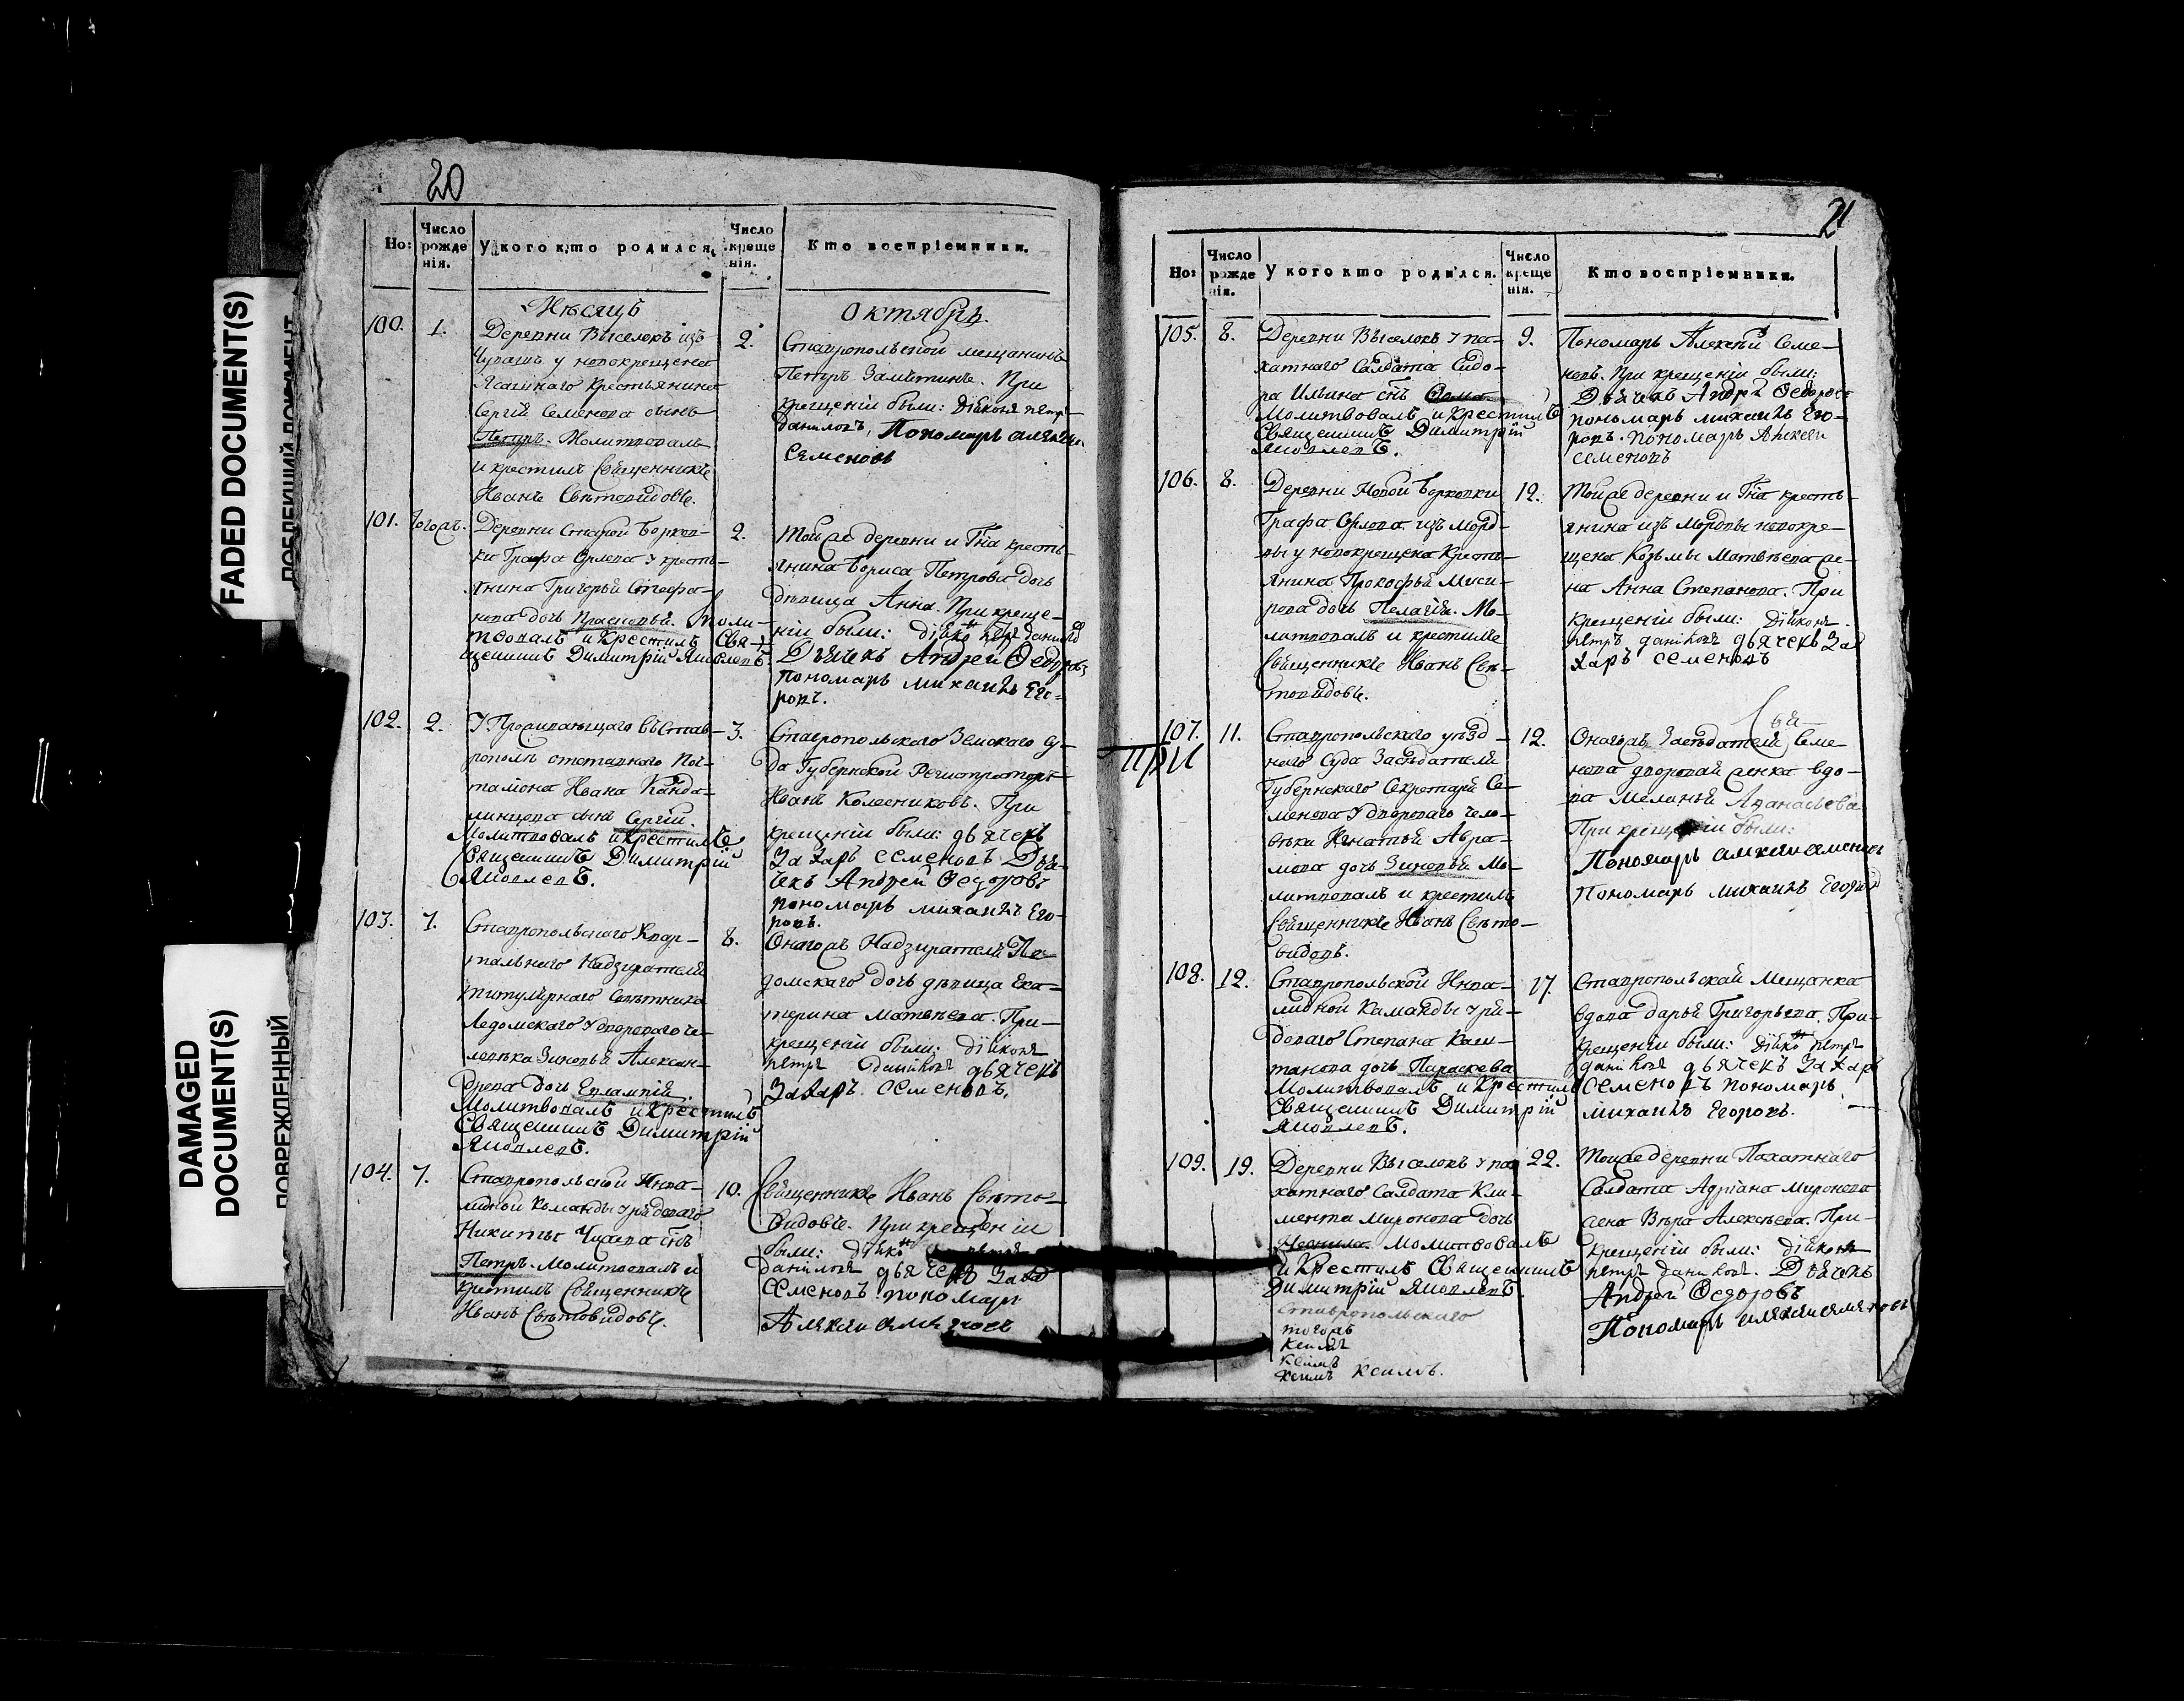 FADED DOCUMENT(S)
DAMAGED
DOCUMENT(S)
ПОВРЕЖДЕННЫЙ
20
Но:
Число
рожде
нія.
У кого кто родился.
Число
креще
нія.
Кто воспріемники.
Мѣсяцъ
Октябрь.
100.
1.
Деревни Выселокъ изъ
Чувашъ у новокрещена
Ясашнаго крестьянина
Сергія Семенова сынъ
Петръ. Молитвовалъ
и крестилъ Священникъ
Иванъ Свѣтовидовъ.
2.
Ставропольской мещанинъ
Петръ Замѣтинъ. При
крещеніи были: діаконъ петръ
даниловъ, Пономарь алексѣй
Семеновъ
101.
тогожъ.
Деревни Старой Борков-
ки Графа Орлова у кресть-
янина Григорья Стефа-
нова дочь Прасковья. Моли-
твовалъ и Крестилъ Свя-
щенникъ Димитрій Яковлевъ.
2.
Тойже деревни и Гна кресть-
янина Бориса Петрова дочь
дѣвица Анна. При креще-
ніи были: діаконъ петръ данилов
Дьячекъ Андрей Ѳедоровъ
пономарь михаилъ Его-
ровъ.
102.
2.
У Проживающаго въ Став-
рополѣ отставного Поч-
талiона Ивана Канда-
линцова сынъ Сергій.
Молитвовалъ и Крестилъ
Священникъ Димитрій
Яковлевъ.
3.
Ставропольского Земского су-
да Губернской Регистраторъ
Иванъ Колесниковъ. При
крещеніи были: дьячекъ
Захаръ семеновъ Дья-
чекъ Андрей Ѳедоровъ
пономарь михаилъ Его-
ровъ.
103.
7.
Ставропольского Квар-
тальнаго Надзирателя
титулярнаго Совѣтника
Ледомского У двороваго че-
ловѣка Зиновья Алексан-
дрова дочь Евлампія.
Молитвовалъ и Крестилъ
Священникъ Димитрій
Яковлевъ.
8.
Онагожъ Надзирателя Ле-
домскаго дочь дѣвица Ека-
терина Матвѣева. При-
крещеніи были: діаконъ
петръ даниловъ дьячекъ
Захаръ. семеновъ.
104.
7.
Ставропольской Инва-
лидной Команды у рядоваго
Никиты Чижова снъ
Петръ. Молитвовалъ и
крестилъ Священникъ
Иванъ Свѣтовидовъ.
10.
Священникъ Иванъ Свѣто-
видовъ. При крещеніи
были: діаконъ петръ
даниловъ дьячекъ Захар
Семеновъ. пономарь
Алексѣй семеновъ
21
Но:
Число
рожде
нія.
У кого кто родился.
Число
креще
нія.
Кто воспріемники.
105.
8.
Деревни Выселокъ у па-
хатнаго Салдата Сидо-
ра Ильина снъ Ѳома
Молитвовалъ и Крестилъ
Священникъ Димитрій
Яковлевъ.
9.
Пономарь Алексѣй Семе-
новъ. При крещеніи были:
Дьячекъ Андрей Ѳедоровъ
пономарь михаилъ Его-
ровъ. пономарь Алексѣй
семеновъ
106.
8.
Деревни Новой Борковки
Графа Орлова изъ Морд-
вы у новокрещена Кресть-
янина Прокофья МИси-
рова дочь Пелагія. Мо-
литвовалъ и крестилъ
Священникъ Иванъ Свѣ-
товидовъ.
12.
Тойже деревни и Гна кресть-
янина изъ Мордвы новокре-
щена Козьмы Матвѣева же-
на Анна Степанова. При
крещеніи были: діаконъ
петръ даниловъ дьячекъ За
харъ семеновъ
при
107.
11.
Ставропольскаго уѣзд-
наго Суда Засѣдателя
Губернскаго Секретаря Се-
менова У двороваго чело-
вѣка Игнатья Авра-
мова дочь Зиновья Мо-
литвовалъ и крестилъ
Священникъ Иванъ Свѣто-
видовъ.
12.
Онагожъ Засѣдателя Семе-
нова дворовой женка вдо-
ва Меланья Афанасьева
При крещеніи были:
Пономарь алексѣй семеновъ
Пономарь михаилъ Егоровъ
108.
12.
Ставропольской Инва-
лидной Каманды у ря-
доваго Степана Каш-
танова дочь Параскева
Молитвовалъ и Крестилъ
Священникъ Димитрій
Яковлевъ.
17.
Ставропольская Мещанка
вдова Дарья Григорьева. При-
крещеніи были: діаконъ петръ
даниловъ дьячекъ Захаръ
Семеновъ пономарь
михаилъ Егоровъ.
109.
19.
Деревни Выселокъ у па-
хатнаго Салдата Кли-
мента Миронова дочь
Молитвовалъ
и Крестилъ Священникъ
Димитрій Яковлевъ.
Ставропольскаго
тогожъ
22.
Тойже деревни Пахатнаго
Салдата Адріана Миронова
жена Вѣра Алексѣева. При-
крещеніи были: діаконъ
петръ даниловъ. Дьячекъ
Андрей Ѳедоровъ
Пономарь алексѣй семеновъ